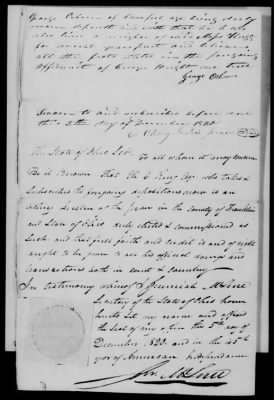 George Osborn of lawful age being duly
sworn deposeth and saith that he
also being a neighbor of said Moses Wright
for several years past and believes
all the facts stated in the foregoing
affidavit of George Wright are true
George Osborn
Sworn to and subscribed before me
this 5th day of December 1820
The State of Ohio Sct.
To all whom it may concern
Be it known, That
Subscribes the foregoing depositions was is an
acting Justice of the peace in the county of Franklin
and State of Ohio duly elected & commissioned as
Such and that full faith and credit is and of right
ought to be given to all his official doings and
transactions both in court & Country
In testimony whereof I Jeremiah McLene
Secretary of the State of Ohio have
hereto Set my name and affixed
the Seal of my office the 5th day of
December 1820 and in the 45th
year of American independence
Jer. McLene